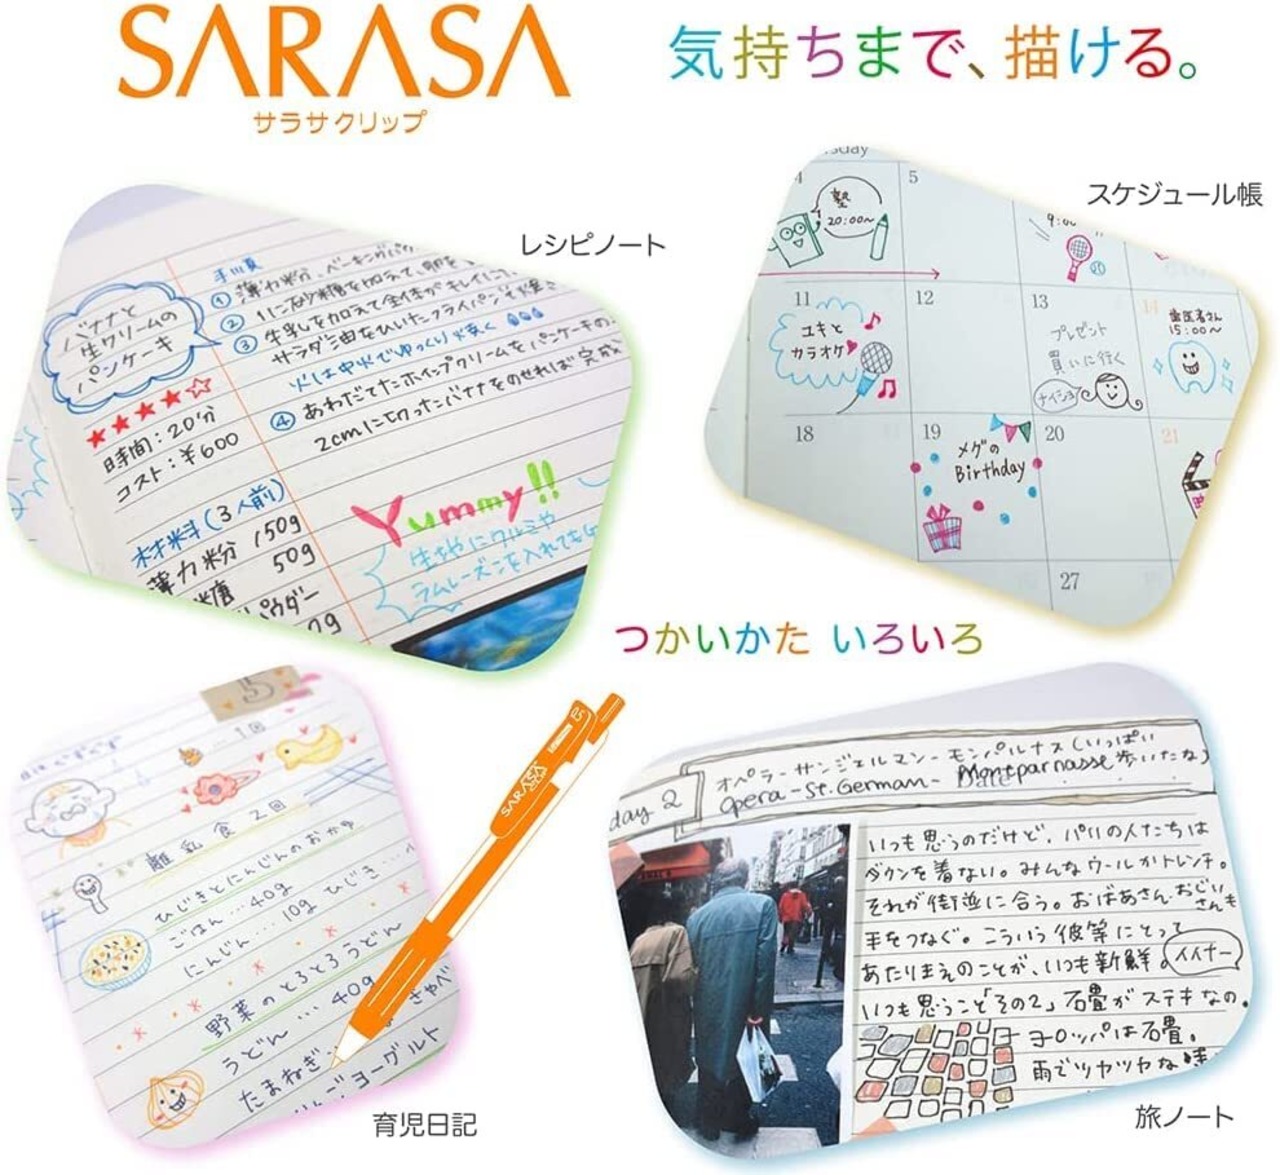 SARASA
サラサクリップ
気持ちまで、描ける。
レシピノート
バナナと
生クリームの
パンケーキ
時間：20分
コスト：¥600
材料(3人前)
薄力粉 150g
糖 50g
パウダー
手順
① 薄力粉、ベーキングパ
②
③ 牛乳を加えて全体がキレイに
サラダ油をひいたフライパンで焼
火は中火でゆっくり焼く
④ あわだてたホイップクリームをパンケーキの
2cmに切ったバナナをのせれば完成
Yummy!!
生地にクルミや
ラムレーズンを入れても
スケジュール帳
sday
4
塾
20:00~
5
9:00
11
ユキと
カラオケ
12
13
プレゼント
買いに行く
ナイショ
14
歯医者さん
15:00~
18
19
メグの
Birthday
20
21
27
つかいかた いろいろ
1回
離乳食2回
ひじきとにんじんのおかゆ
ごはん…40g ひじき…
にんじん…10g
野菜のとろとろうどん
うどん…40g
たまねぎ
ヨーグルト
SARASA
CLIP
育児日記
day 2
オペラーサンジェルマンーモンパルナス(いっぱい
Opera-St.German-Montparnasse 歩いたな)
Date
いつも思うのだけど、パリの人たちは
ダウンを着ない。みんなウールかトレンチ。
それが街並に合う。おばあさん・おじいさんも
手をつなぐ。こういう彼等にとって
あたりまえのことが、いつも新鮮。
イイナー
いつも思うこと「その2」石畳がステキなの。
ヨーロッパは石畳。
雨でツヤツヤな
旅ノート